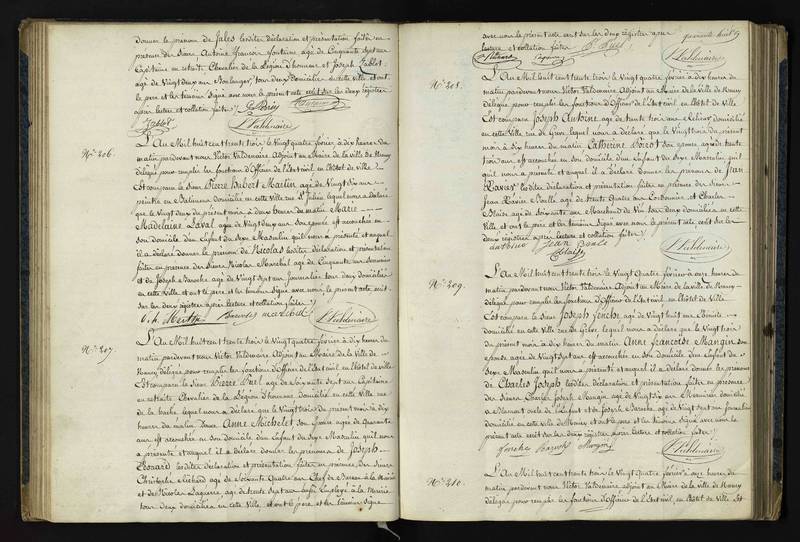 donner le prénom de Jules lesdites déclaration et présentation faites en
présence des Sieurs Antoine François Fontaine agé de Cinquante Sept ans
Capitaine en retraite Chevalier de la Légion d'honneur et Joseph Jablot
agé de Vingt deux ans Boulanger, tous deux domiciliés en cette ville et ont
le père et les témoins signé avec nous le présent acte écrit sur les deux registres
après lecture et collation faites
Jablot
L. Valdenaire
N.° 206.
L'An Mil huit cent trente trois le Vingt quatre février à dix heures du
matin pardevant nous Victor Valdenaire Adjoint au Maire de la ville de Nancy
délégué pour remplir les fonctions d'Officier de l'état civil en l'hôtel de Ville
Est comparu le Sieur Pierre Hubert Martin agé de Vingt six ans
peintre en domicilié en cette ville rue St Julien lequel nous a déclaré
que le Vingt deux du présent mois à deux heures du matin Marie
Madelaine Laval agée de Vingt deux ans son épouse est accouchée en
son domicile d'un Enfant du Sexe Masculin qu'il nous a présenté et auquel
il a déclaré donner le prénom de Nicolas lesdites déclaration et présentation
faites en présence des Sieurs Nicolas Maréchal agé de Cinquante ans
et de Joseph Baroche agé de Vingt Sept ans Journalier tous deux domiciliés
en cette Ville et ont le père et les témoins signé avec nous le présent acte écrit
sur les deux registres après lecture et collation faites
L. Valdenaire
N.° 207.
L'An Mil huit cent trente trois le Vingt quatre février à dix heures du
matin pardevant nous Victor Valdenaire Adjoint au Maire de la Ville de
Nancy délégué pour remplir les fonctions d'Officier de l'état civil en l'hôtel de Ville
Est comparu le Sieur Pierre Buel agé de Soixante Sept ans Capitaine
en retraite Chevalier de la Légion d'honneur domicilié en cette ville rue
de la hache lequel nous a déclaré que le Vingt trois du présent mois à dix
heures du matin Anne Michelet son épouse agée de Quarante
ans est accouchée en son domicile d'un Enfant du Sexe Masculin qu'il nous
a présenté et auquel il a déclaré donner les prénoms de Joseph
Léonard lesdites déclaration et présentation faites en présence des Sieurs
Christophe Richard agé de Soixante Quatre ans Chef de Bureau à la Mairie
et de Nicolas Laguerre agé de trente Sept ans Employé à la Mairie
tous deux domiciliés en cette Ville, et ont le père et les témoins signé
quarante huit
avec nous le présent acte écrit sur les deux registres après
lecture et collation faites P. Buel
L. Valdenaire
N.° 208.
L'An Mil huit cent trente trois le Vingt quatre février à dix heures du
matin pardevant nous Victor Valdenaire Adjoint au Maire de la Ville de Nancy
délégué pour remplir les fonctions d'Officier de l'état civil en l'hôtel de Ville
Est comparu Joseph Antoine agé de trente trois ans domicilié
en cette Ville rue de lequel nous a déclaré que le Vingt trois du présent
mois à dix heures du matin Catherine Poirot son épouse agée de trente
trois ans est accouchée en son domicile d'un Enfant du Sexe Masculin, qu'il
nous a présenté et auquel il a déclaré donner les prénoms de Jean
Xavier lesdites déclaration et présentation faites en présence des Sieurs
Jean agé de trente Quatre ans et Charles
Blaise agé de Soixante ans Marchand de Vin tous deux domiciliés en cette
Ville, et ont le père et les témoins signé avec nous le présent acte, écrit sur les
deux registres après lecture et collation faites
antoine Jean
Blaise
L. Valdenaire
N.° 209.
L'An Mil huit cent trente trois le Vingt Quatre février à onze heures du
matin pardevant nous Victor Valdenaire Adjoint au Maire de la ville de Nancy
délégué pour remplir les fonctions d'Officier de l'état civil en l'hôtel de Ville
Est comparu le Sieur Joseph Ferchs agé de Vingt huit ans Ebéniste
domicilié en cette Ville rue lequel nous a déclaré que le Vingt trois
du présent mois à dix heures du matin Anne françoise Mangin son
épouse agée de Vingt Sept ans est accouchée en son domicile d'un Enfant du
Sexe Masculin qu'il nous a présenté et auquel il a déclaré donner les prénoms
de Charles Joseph lesdites déclaration et présentation faites en présence
des Sieurs Charles Joseph Mangin agé de Vingt six ans Menuisier domicilié
à oncle de l'Enfant et de Joseph Baroche agé de Vingt Sept ans Journalier
domicilié en cette Ville de Nancy et ont le père et les témoins signé avec nous le
présent acte écrit sur les deux registres après lecture et collation faites
ferchs Baroche Mangin
L. Valdenaire
N.° 210.
L'An Mil huit cent trente trois le Vingt Quatre février à onze heures du
matin pardevant nous Victor Valdenaire Adjoint au Maire de la ville de Nancy
délégué pour remplir les fonctions d'Officier de l'état civil, en l'hôtel de Ville Est